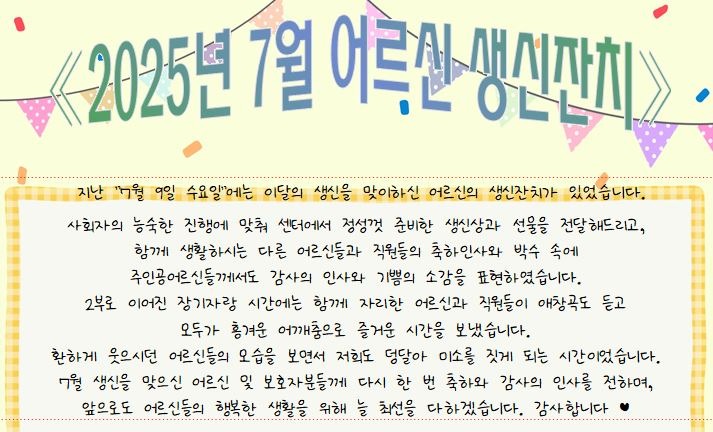 《2025년 7월 어르신 생신잔치》
지난 "7월 9일 수요일"에는 이달의 생신을 맞이하신 어르신의 생신잔치가 있었습니다.
사회자의 능숙한 진행에 맞춰 센터에서 정성껏 준비한 생신상과 선물을 전달해드리고,
함께 생활하시는 다른 어르신들과 직원들의 축하인사와 박수 속에
주인공어르신들께서도 감사의 인사와 기쁨의 소감을 표현하였습니다.
2부로 이어진 장기자랑 시간에는 함께 자리한 어르신과 직원들이 애창곡도 듣고
모두가 흥겨운 어깨춤으로 즐거운 시간을 보냈습니다.
환하게 웃으시던 어르신들의 모습을 보면서 저희도 덩달아 미소를 짓게 되는 시간이었습니다.
7월 생신을 맞으신 어르신 및 보호자분들께 다시 한 번 축하와 감사의 인사를 전하며,
앞으로도 어르신들의 행복한 생활을 위해 늘 최선을 다하겠습니다. 감사합니다 ♥